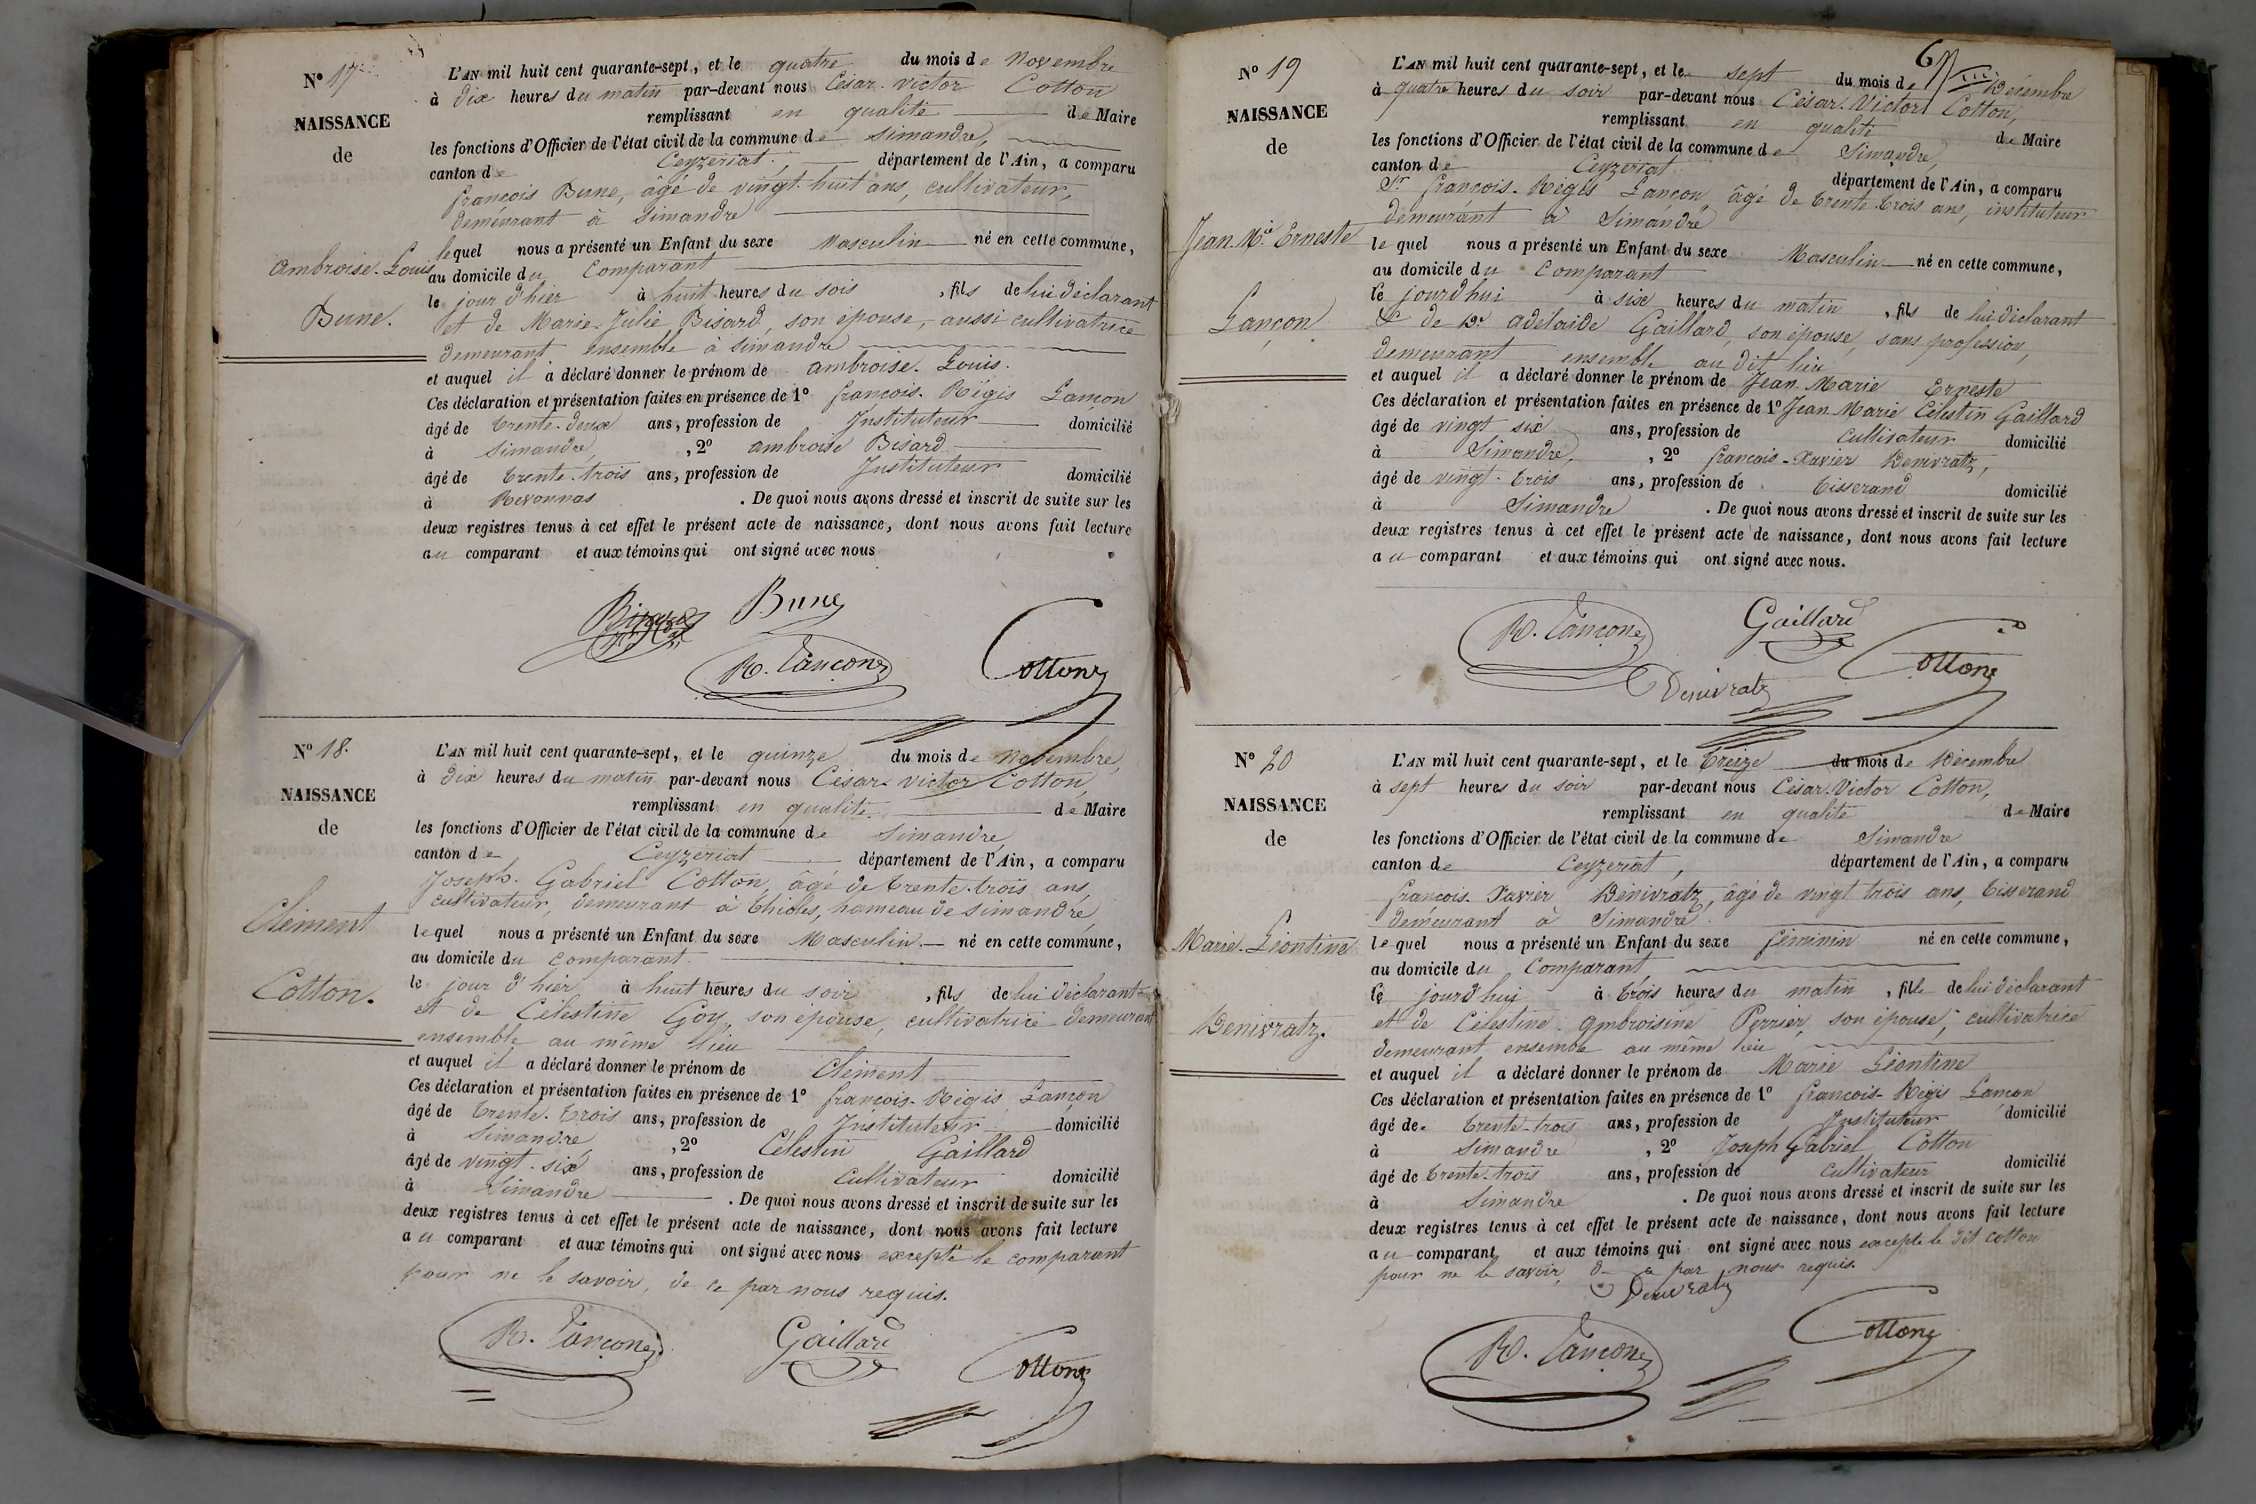 N° 17
NAISSANCE
de
Ambroise. Louis
Bune.
L'AN mil huit cent quarante-sept, et le quatre du mois de Novembre
à dix heures du matin par-devant nous César. Victor Cotton
remplissant en qualité de Maire
les fonctions d'Officier de l'état civil de la commune de Simandre,
canton de Ceyzeriat, département de l'Ain, a comparu
françois Bune, âgé de vingt-huit ans, cultivateur,
demeurant à Simandre
lequel nous a présenté un Enfant du sexe Masculin né en cette commune,
au domicile du Comparant
le jour d'hier à huit heures du soir, fils de lui déclarant
et de Marie-Julie Bisard, son épouse, aussi cultivatrice
demeurant ensemble à Simandre
et auquel il a déclaré donner le prénom de Ambroise. Louis.
Ces déclaration et présentation faites en présence de 1° françois. Régis Lançon
âgé de trente-deux ans, profession de Instituteur domicilié
à Simandre, 2° Ambroise Bisard
âgé de trente-trois ans, profession de Instituteur domicilié
à Revonnas. De quoi nous avons dressé et inscrit de suite sur les
deux registres tenus à cet effet le présent acte de naissance, dont nous avons fait lecture
au comparant et aux témoins qui ont signé avec nous
Bisard Bune
R. Lançon Cotton
N° 18.
NAISSANCE
de
Clément
Cotton.
L'AN mil huit cent quarante-sept, et le quinze du mois de Novembre,
à dix heures du matin par-devant nous César. Victor Cotton,
remplissant en qualité de Maire
les fonctions d'Officier de l'état civil de la commune de Simandre,
canton de Ceyzeriat département de l'Ain, a comparu
Joseph. Gabriel Cotton, âgé de trente-trois ans,
cultivateur, demeurant à Thioles, hameau de Simandre,
lequel nous a présenté un Enfant du sexe Masculin. né en cette commune,
au domicile du comparant.
le jour d'hier à huit heures du soir, fils de lui déclarant
et de Célestine Goy, son épouse, cultivatrice demeurant
ensemble au même lieu
et auquel il a déclaré donner le prénom de Clément
Ces déclaration et présentation faites en présence de 1° françois. Régis Lançon
âgé de trente-trois ans, profession de Instituteur domicilié
à Simandre, 2° Célestin Gaillard
âgé de vingt-six ans, profession de cultivateur domicilié
à Simandre. De quoi nous avons dressé et inscrit de suite sur les
deux registres tenus à cet effet le présent acte de naissance, dont nous avons fait lecture
au comparant et aux témoins qui ont signé avec nous excepté le comparant
pour ne le savoir, de ce par nous requis.
R. Lançon Gaillard Cotton
6
N° 19
NAISSANCE
de
Jean. M.ie Erneste
Lançon
L'AN mil huit cent quarante-sept, et le sept du mois de Décembre
à quatre heures du soir par-devant nous César. Victor Cotton,
remplissant en qualité de Maire
les fonctions d'Officier de l'état civil de la commune de Simandre,
canton de Ceyzeriat département de l'Ain, a comparu
Sr. françois. Régis Lançon, âgé de trente-trois ans, instituteur
demeurant à Simandre
lequel nous a présenté un Enfant du sexe Masculin né en cette commune,
au domicile du Comparant
le jourd'hui à six heures du matin, fils de lui déclarant
& de De. Adélaide Gaillard, son épouse, sans profession,
demeurant ensemble au dit lieu
et auquel il a déclaré donner le prénom de Jean. Marie Erneste
Ces déclaration et présentation faites en présence de 1° Jean. Marie Célestin Gaillard
âgé de vingt six ans, profession de Cultivateur domicilié
à Simandre, 2° françois-Xavier Denivratz,
âgé de vingt-trois ans, profession de tisserand domicilié
à Simandre. De quoi nous avons dressé et inscrit de suite sur les
deux registres tenus à cet effet le présent acte de naissance, dont nous avons fait lecture
au comparant et aux témoins qui ont signé avec nous.
R. Lançon Gaillard
Denivratz Cotton
N° 20
NAISSANCE
de
Marie. Léontine
Denivratz.
L'AN mil huit cent quarante-sept, et le treize du mois de Décembre
à sept heures du soir par-devant nous César. Victor Cotton,
remplissant en qualité de Maire
les fonctions d'Officier de l'état civil de la commune de Simandre
canton de Ceyzeriat, département de l'Ain, a comparu
françois. Xavier Denivratz, âgé de vingt trois ans, tisserand
demeurant à Simandre
lequel nous a présenté un Enfant du sexe féminin né en cette commune,
au domicile du Comparant
le jourd'hui à trois heures du matin, fille de lui déclarant
et de Célestine. Ambroisine Perrier, son épouse, cultivatrice
demeurant ensemble au même lieu
et auquel il a déclaré donner le prénom de Marie Léontine
Ces déclaration et présentation faites en présence de 1° françois-Régis Lançon
âgé de trente-trois ans, profession de Instituteur domicilié
à Simandre, 2° Joseph Gabriel Cotton
âgé de trente-trois ans, profession de cultivateur domicilié
à Simandre. De quoi nous avons dressé et inscrit de suite sur les
deux registres tenus à cet effet le présent acte de naissance, dont nous avons fait lecture
au comparant et aux témoins qui ont signé avec nous excepté le dit Cotton
pour ne le savoir, de ce par nous requis.
Denivratz
R. Lançon Cotton